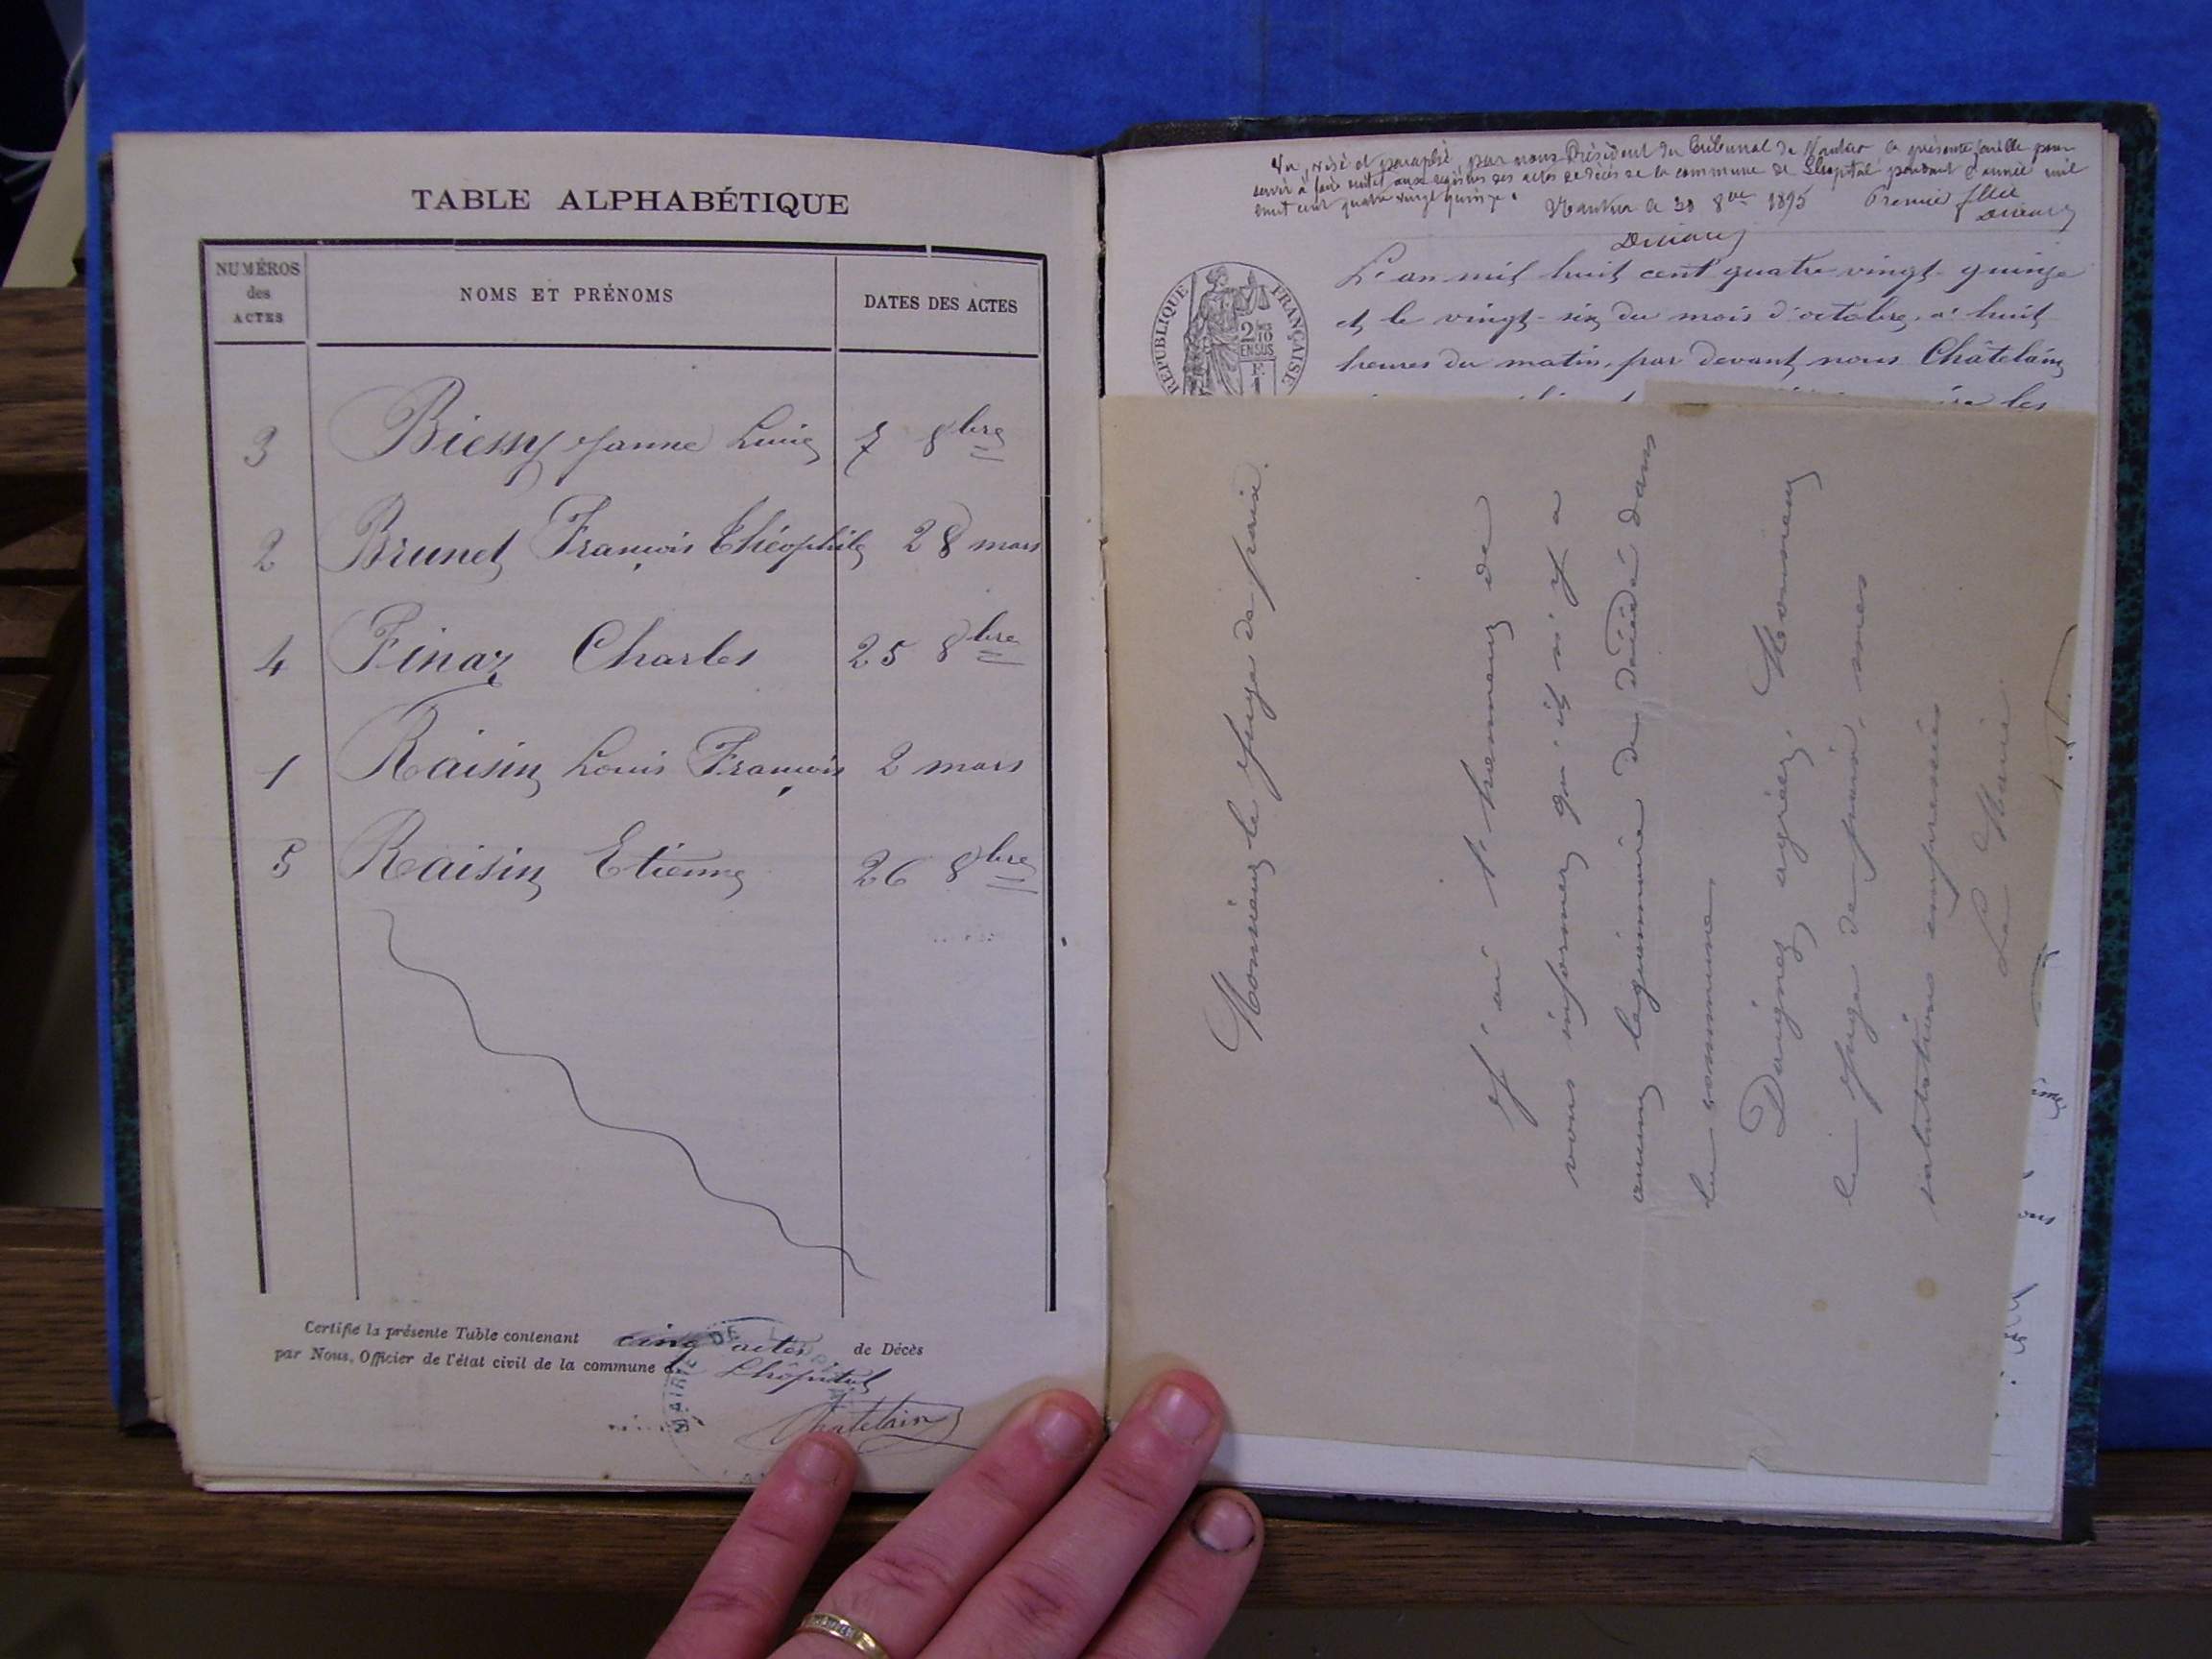 TABLE ALPHABÉTIQUE
NUMÉROS des ACTES
NOMS ET PRÉNOMS
DATES DES ACTES
3 Biessy Janne Louise 7 8bre
2 Brunet François Théophile 28 mars
4 Finaz Charles 25 8bre
1 Raisin Louis François 2 mars
5 Raisin Etienne 26 8bre
Certifié la présente Table contenant cinq actes de Décès
par Nous, Officier de l'état civil de la commune de Lhôpital
MAIRIE DE
Chatelain
Vu, visé et paraphé, par nous Président du Tribunal de Nantua la présente feuille pour
servir à faire suite aux registres des actes de décès de la commune de Lhopital pendant l'année mil
huit cent quatre vingt quinze.
Nantua le 28 8bre 1895
RÉPUBLIQUE FRANÇAISE
L'an mil huit cent quatre vingt-quinze
et le vingt-six du mois d'octobre, à huit
heures du matin, par devant nous Châtelain
Monsieur le Juge de paix.
J'ai l'honneur de
vous informer qu'il n'y a
aucun légionnaire de décédé dans
la commune
Daignez agréer, Monsieur
le Juge de paix, mes
salutations empressées
Le Maire